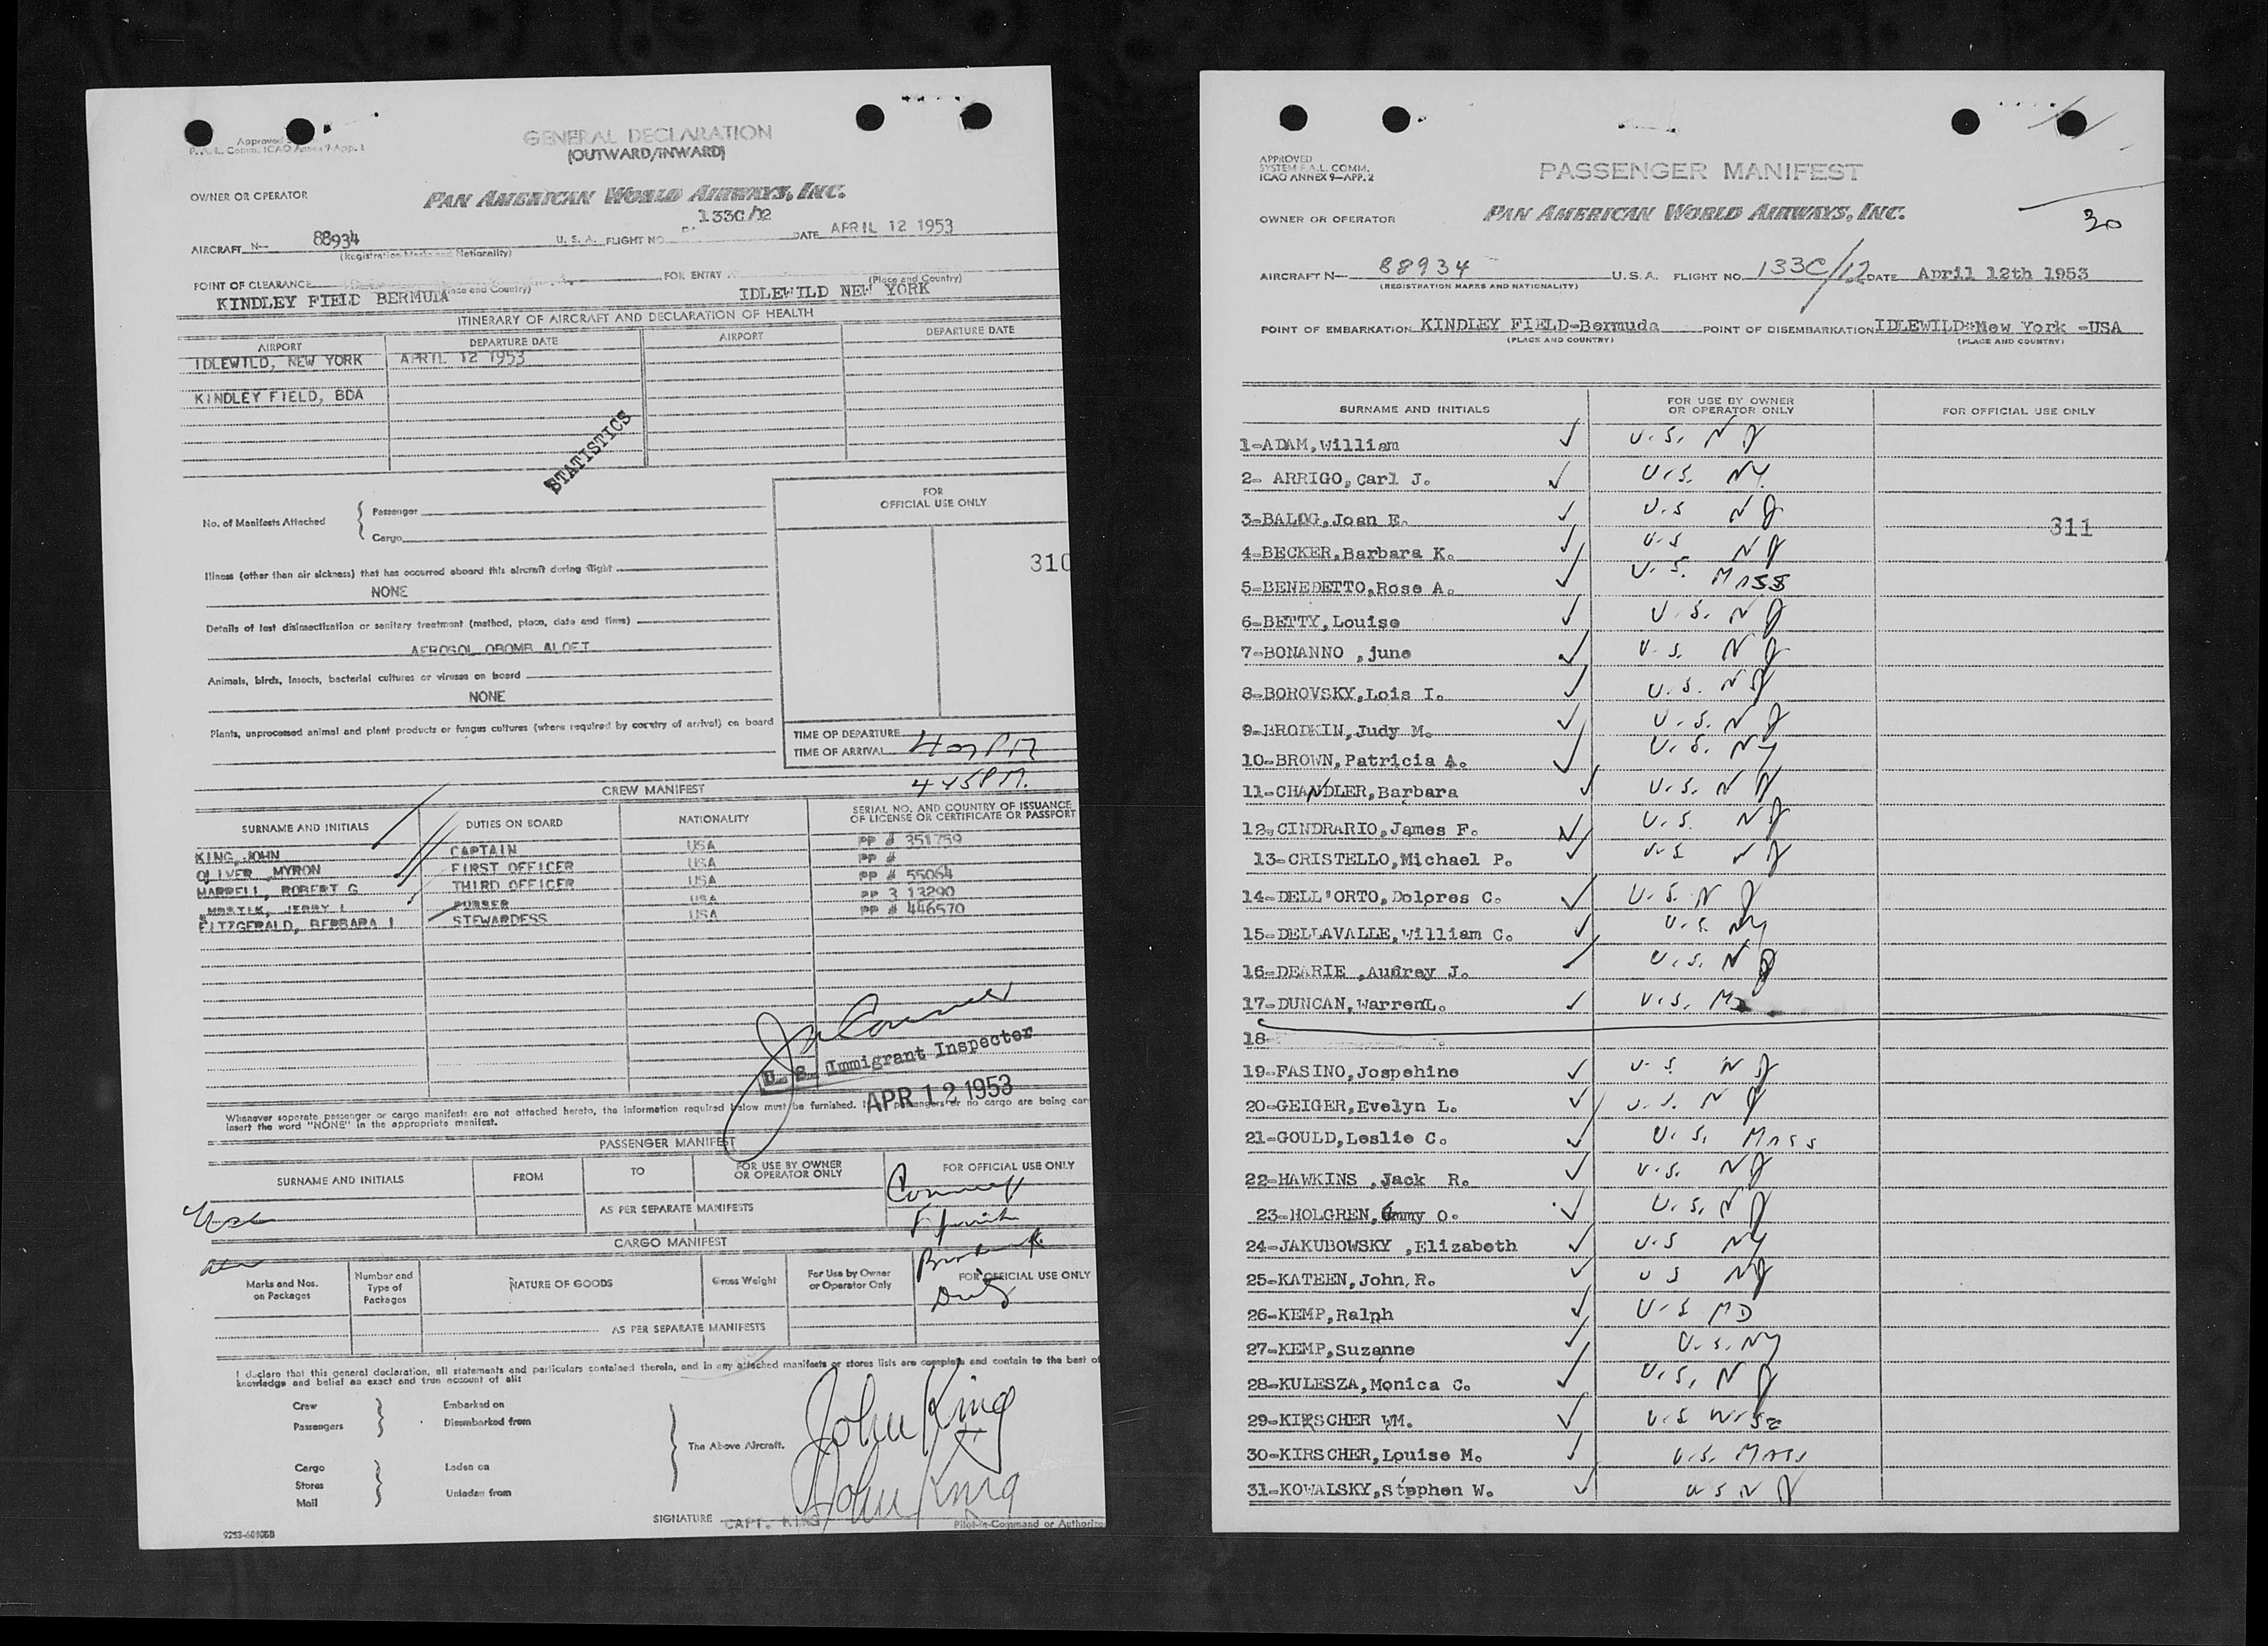 Approved
F.A.L. Comm. ICAO Annex 9-App. 1
GENERAL DECLARATION
(OUTWARD/INWARD)
OWNER OR OPERATOR
PAN AMERICAN WORLD AIRWAYS, INC.
133C/12
AIRCRAFT N— 88934 U. S. A. FLIGHT NO. DATE APRIL 12 1953
(Registration Marks and Nationality)
POINT OF CLEARANCE FOR ENTRY
(Place and Country) (Place and Country)
KINDLEY FIELD BERMUDA IDLEWILD NEW YORK
ITINERARY OF AIRCRAFT AND DECLARATION OF HEALTH
AIRPORT DEPARTURE DATE AIRPORT DEPARTURE DATE
IDLEWILD, NEW YORK APRIL 12 1953
KINDLEY FIELD, BDA
STATISTICS
No. of Manifests Attached
Passenger
Cargo
FOR
OFFICIAL USE ONLY
310
Illness (other than air sickness) that has occurred aboard this aircraft during flight
NONE
Details of last disinsectization or sanitary treatment (method, place, date and time)
AEROSOL OBOMB ALOFT
Animals, birds, insects, bacterial cultures or viruses on board
NONE
Plants, unprocessed animal and plant products or fungus cultures (where required by country of arrival) on board
TIME OF DEPARTURE
TIME OF ARRIVAL 407 PM
445 PM.
CREW MANIFEST
SURNAME AND INITIALS DUTIES ON BOARD NATIONALITY SERIAL NO. AND COUNTRY OF ISSUANCE
OF LICENSE OR CERTIFICATE OR PASSPORT
KING, JOHN CAPTAIN USA PP # 351759
OLIVER, MYRON FIRST OFFICER USA PP #
HARRELL, ROBERT G THIRD OFFICER USA PP # 55064
JERRY L PURSER USA PP 3 13290
FITZGERALD, BERBARA J STEWARDESS USA PP # 446570
U. S. Immigrant Inspector
APR 12 1953
Whenever separate passenger or cargo manifests are not attached hereto, the information required below must be furnished. If passengers or no cargo are being car
insert the word "NONE" in the appropriate manifest.
PASSENGER MANIFEST
SURNAME AND INITIALS FROM TO FOR USE BY OWNER
OR OPERATOR ONLY FOR OFFICIAL USE ONLY
AS PER SEPARATE MANIFESTS
CARGO MANIFEST
Marks and Nos.
on Packages
Number and
Type of
Packages
NATURE OF GOODS
Gross Weight
For Use by Owner
or Operator Only
FOR OFFICIAL USE ONLY
AS PER SEPARATE MANIFESTS
I declare that this general declaration, all statements and particulars contained therein, and in any attached manifests or stores lists are complete and contain to the best of
knowledge and belief an exact and true account of all:
Crew Embarked on
Passengers Disembarked from
The Above Aircraft.
Cargo Laden on
Stores
Mail Unladen from
John King
John King
SIGNATURE CAPT. KING
Pilot-in-Command or Authorize
9253-60106B
APPROVED
SYSTEM F.A.L. COMM.
ICAO ANNEX 9—APP. 2
PASSENGER MANIFEST
OWNER OR OPERATOR
PAN AMERICAN WORLD AIRWAYS, INC.
30
AIRCRAFT N— 88934 U. S. A. FLIGHT NO. 133C/12 DATE April 12th 1953
(REGISTRATION MARKS AND NATIONALITY)
POINT OF EMBARKATION KINDLEY FIELD-Bermuda POINT OF DISEMBARKATION IDLEWILD-New York -USA
(PLACE AND COUNTRY) (PLACE AND COUNTRY)
SURNAME AND INITIALS FOR USE BY OWNER
OR OPERATOR ONLY FOR OFFICIAL USE ONLY
1-ADAM,William U.S. NJ
2- ARRIGO,Carl J. U.S. NY.
3-BALOG,Joan E. U.S NJ
311
4-BECKER,Barbara K. U.S NJ
5-BENEDETTO,Rose A. U.S. MASS
6-BETTY,Louise U.S. NJ
7-BONANNO ,june U.S. NJ
8-BOROVSKY,Lois I. U.S. NJ
9-BRODKIN,Judy M. U.S. NJ
10-BROWN,Patricia A. U.S. NY
11-CHANDLER,Barbara U.S. NJ
12-CINDRARIO,James F. U.S. NJ
13-CRISTELLO,Michael P. U.S NJ
14-DELL'ORTO,Dolores C. U.S. NJ
15-DELLAVALLE,William C. U.S. NY
16-DEARIE ,Audrey J. U.S. NJ
17-DUNCAN,WarrenL. U.S. MD
18-
19-FASINO,Jospehine U.S. NJ
20-GEIGER,Evelyn L. U.S. NJ
21-GOULD,Leslie C. U.S. MASS
22-HAWKINS ,Jack R. U.S. NJ
23-HOLGREN,Emmy O. U.S. NJ
24-JAKUBOWSKY ,Elizabeth U.S NY
25-KATEEN,John,R. U S NJ
26-KEMP,Ralph U.S MD
27-KEMP,Suzanne U.S. NY
28-KULESZA,Monica C. U.S. NJ
29-KIRSCHER WM. U.S Wisc
30-KIRSCHER,Louise M. U.S. MASS
31-KOWALSKY,Stephen W. U S NJ